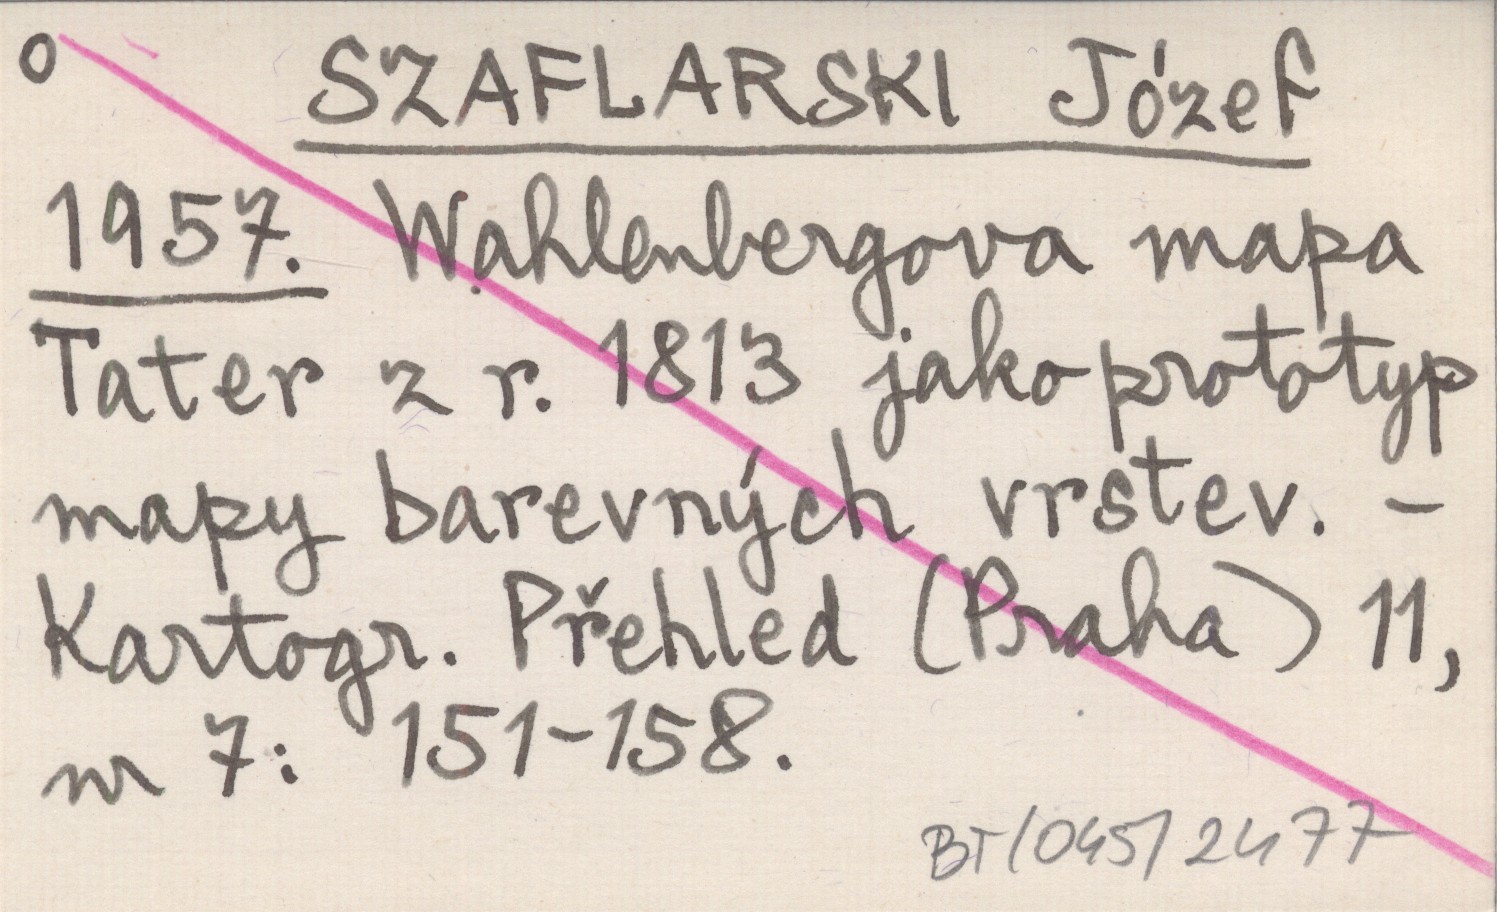 o SZAFLARSKI Józef
1957. Wahlenbergova mapa
Tater z r. 1813 jako prototyp
mapy barevných vrstev. –
Kartogr. Přehled (Praha) 11,
nr 7: 151-158.
BT/045/2477